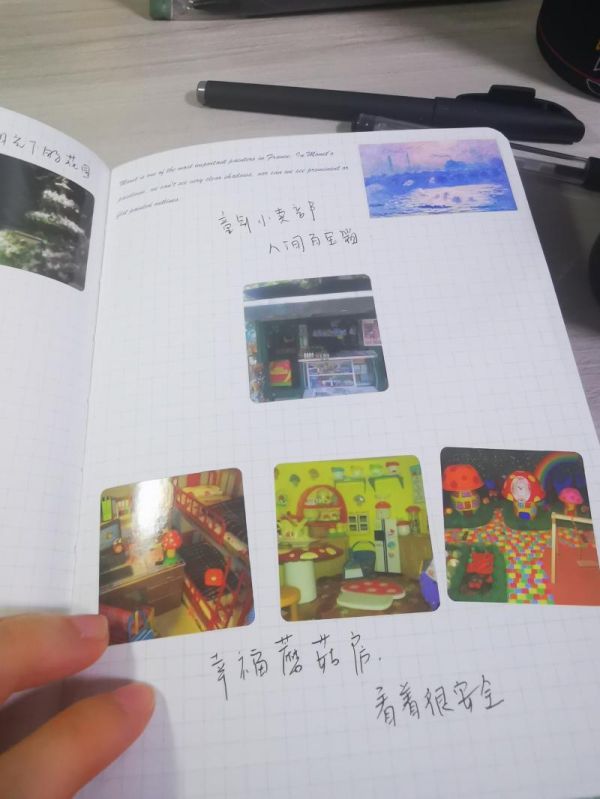 月光下的花园
Monet is one of the most important painters in France. In Monet's
paintings, we can't see very clear shadows, nor can we see prominent or
flat painted outlines.
童年小卖部
人间百宝箱
幸福蘑菇房.
看着很安全